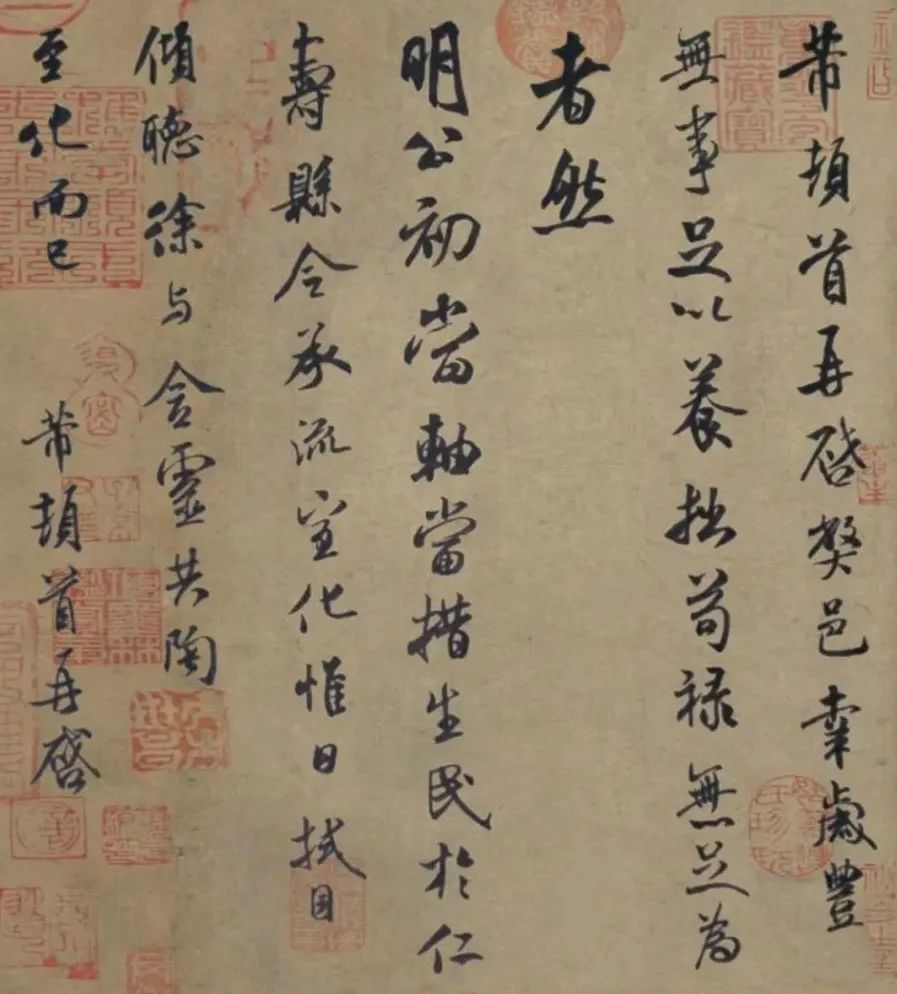 芾頓首再啓弊邑幸歲豐
無事足以養拙苟禄無足為
者然
明公初當軸當措生民於仁
壽縣令承流宣化惟日拭目
傾聽徐与含靈共陶
至化而已
芾頓首再啓